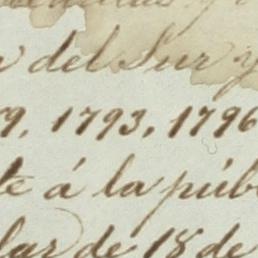 del Sur y
9, 1793, 1796
te á la púb
lar de 18 de